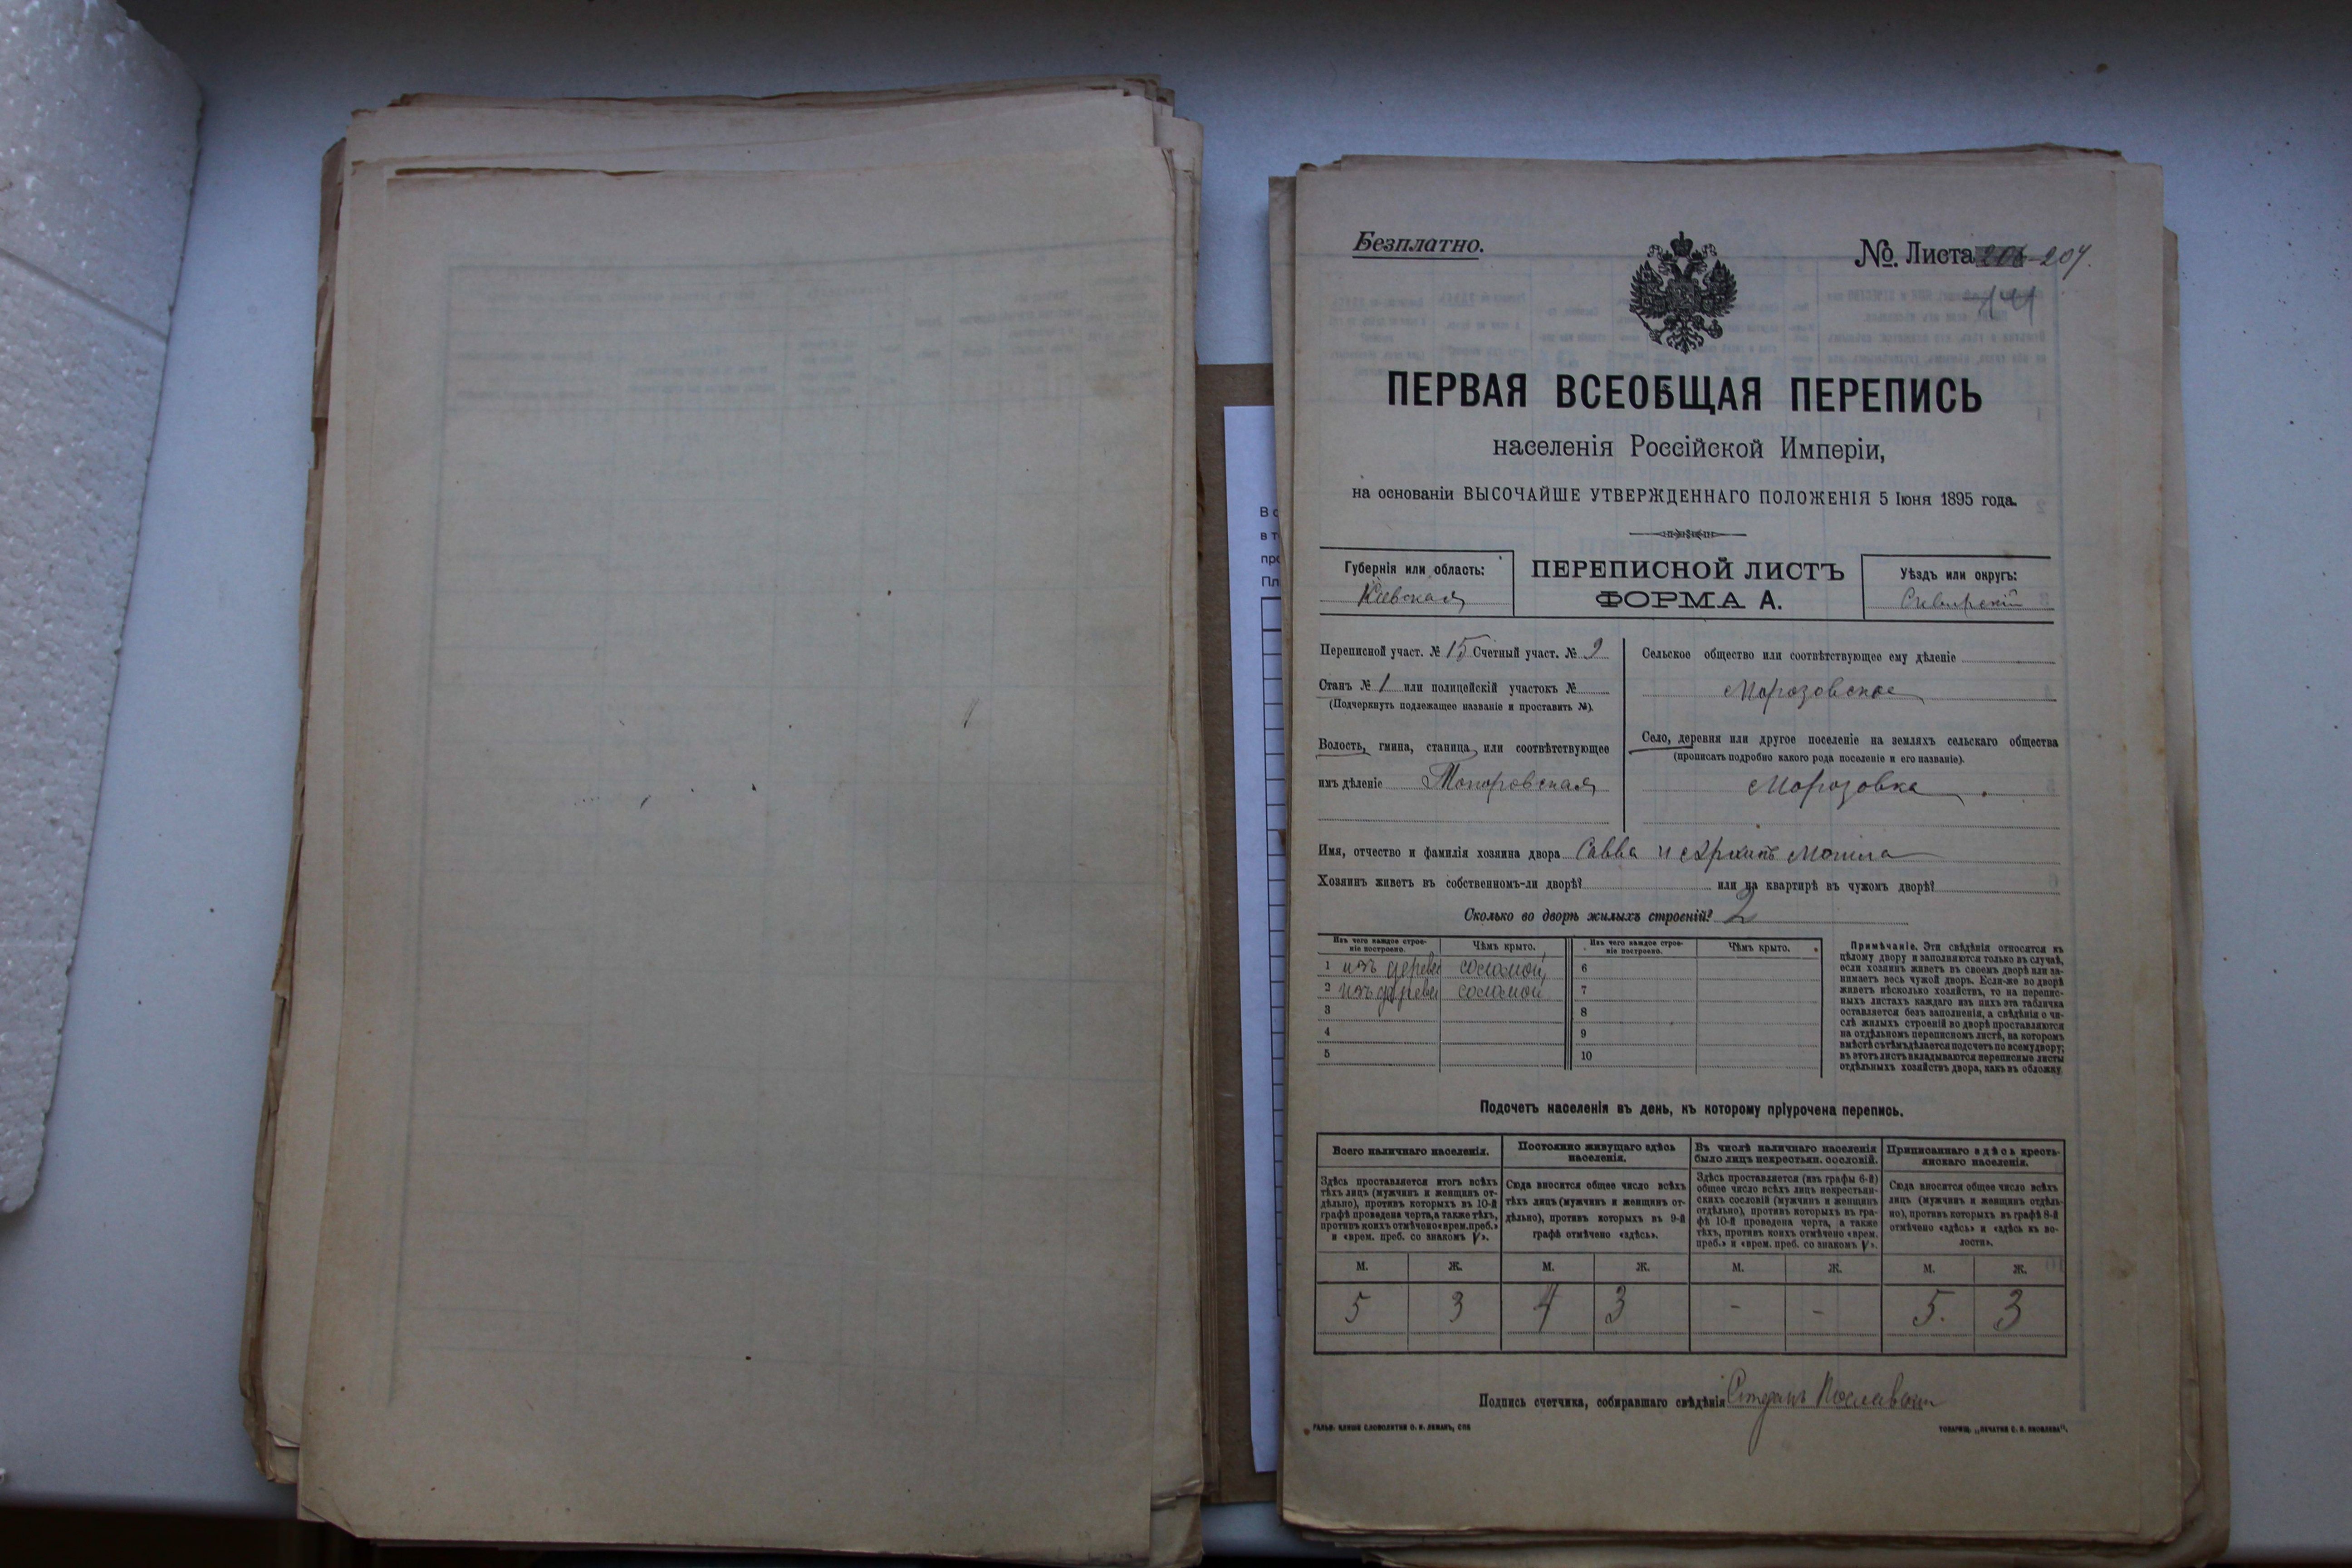 Безплатно.
№. Листа 204.
ПЕРВАЯ ВСЕОБЩАЯ ПЕРЕПИСЬ
населенія Россійской Имперіи,
на основаніи ВЫСОЧАЙШЕ УТВЕРЖДЕННАГО ПОЛОЖЕНІЯ 5 Іюня 1895 года.
Губернія или область:
Кіевская
ПЕРЕПИСНОЙ ЛИСТЪ
ФОРМА А.
Уѣздъ или округъ:
Сквирскій
Переписной участ. № 15 Счетный участ. № 9
Станъ № 1 или полицейскій участокъ №
(Подчеркнуть подлежащее названіе и проставить №).
Волость, гмина, станица или соотвѣтствующее
имъ дѣленіе Топоровская
Сельское общество или соотвѣтствующее ему дѣленіе
Морозовское
Село, деревня или другое поселеніе на земляхъ сельскаго общества
(прописать подробно какого рода поселеніе и его названіе).
Морозовка
Имя, отчество и фамилія хозяина двора Савва и Архипъ
Хозяинъ живетъ въ собственномъ-ли дворѣ? или на квартирѣ въ чужомъ дворѣ?
Сколько во дворѣ жилыхъ строеній? 2
Изъ чего каждое строе-
ніе построено.
Чѣмъ крыто.
Изъ чего каждое строе-
ніе построено.
Чѣмъ крыто.
1 изъ дерева соломой 6
2 изъ дерева соломой 7
3 8
4 9
5 10
Примѣчаніе. Эти свѣдѣнія относятся къ
цѣлому двору и заполняются только въ случаѣ,
если хозяинъ живетъ въ своемъ дворѣ или за-
нимаетъ весь чужой дворъ. Если-же во дворѣ
живетъ нѣсколько хозяйствъ, то на перепис-
ныхъ листахъ каждаго изъ нихъ эта табличка
оставляется безъ заполненія, а свѣдѣнія о чи-
слѣ жилыхъ строеній во дворѣ проставляются
на отдѣльномъ переписномъ листѣ, на которомъ
вмѣстѣ съ тѣмъ дѣлается подсчетъ по всему двору;
въ этотъ листъ вкладываются переписные листы
отдѣльныхъ хозяйствъ двора, какъ въ обложку
Подсчетъ населенія въ день, къ которому пріурочена перепись.
Всего наличнаго населенія.
Здѣсь проставляется итогъ всѣхъ
тѣхъ лицъ (мужчинъ и женщинъ от-
дѣльно), противъ которыхъ въ 10-й
графѣ проведена черта, а также тѣхъ,
противъ коихъ отмѣчено «врем. преб.»
и «врем. преб. со знакомъ V».
Постоянно живущаго здѣсь
населенія.
Сюда вносится общее число всѣхъ
тѣхъ лицъ (мужчинъ и женщинъ от-
дѣльно), противъ которыхъ въ 9-й
графѣ отмѣчено «здѣсь».
Въ числѣ наличнаго населенія
было лицъ некрестьян. сословій.
Здѣсь проставляется (изъ графы 6-й)
общее число всѣхъ лицъ некрестьян-
скихъ сословій (мужчинъ и женщинъ
отдѣльно), противъ которыхъ въ гра-
фѣ 10-й проведена черта, а также
тѣхъ, противъ коихъ отмѣчено «врем.
преб.» и «врем. преб. со знакомъ V».
Приписаннаго здѣсь кресть-
янскаго населенія.
Сюда вносится общее число всѣхъ
лицъ (мужчинъ и женщинъ отдѣль-
но), противъ которыхъ въ графѣ 8-й
отмѣчено «здѣсь» и «здѣсь къ во-
лости».
М. Ж. М. Ж. М. Ж. М. Ж.
5 3 4 3 - - 5. 3
Подпись счетчика, собиравшаго свѣдѣнія
ГАЛЬВ. КЛИШЕ СЛОВОЛИТНИ О. И. ЛЕМАНЪ, СПБ
ТОВАРИЩ. „ПЕЧАТНЯ С. П. ЯКОВЛЕВА“.